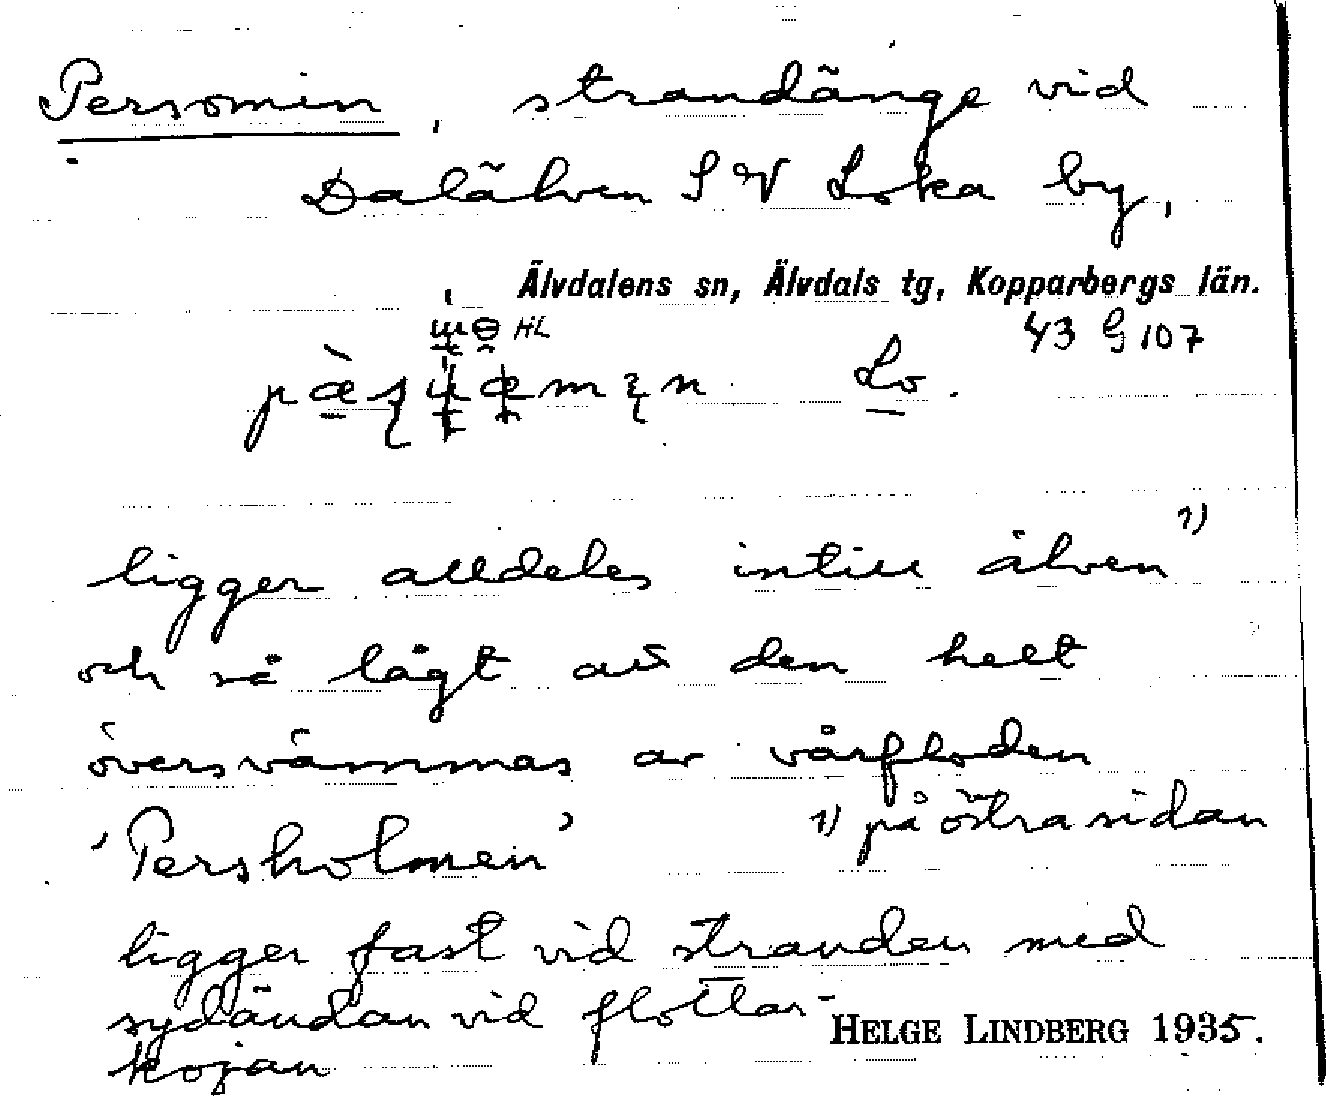 Persomin, strandänge vid
Dalälven SV Loka by,
Älvdalens sn, Älvdals tg, Kopparbergs län.
HL 43 G 107
Lo.
ligger alldeles intill älven 1)
och så lågt att den helt
översvämmas av vårfloden
'Persholmen' 1) på östra sidan
ligger fast vid stranden med
sydändan vid flottar-
kojan HELGE LINDBERG 1935.